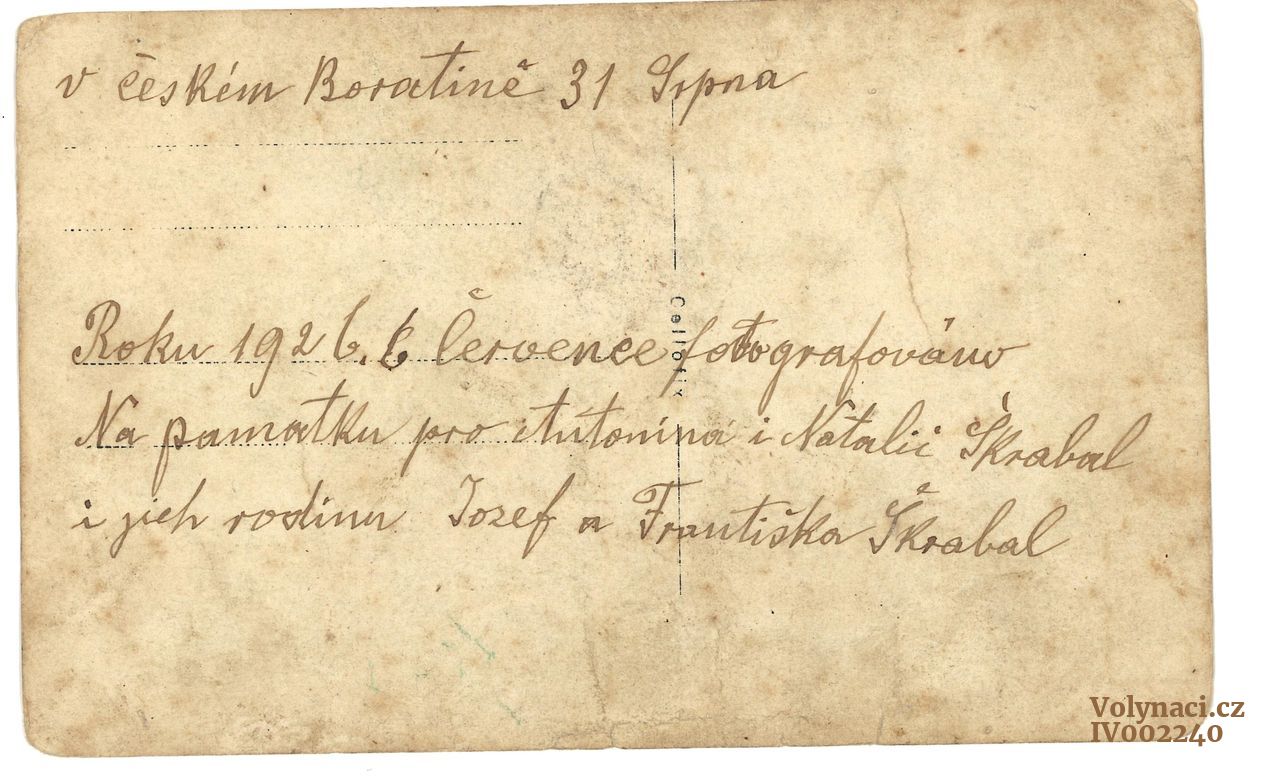 v českém Boratině 31 Srpna
Roku 1926. 6 Července fotografováno
Na pamatku pro Antonina i Natalii Škrabal
i jich rodinu Jozef a Františka Škrabal
Volynaci.cz
IV002240